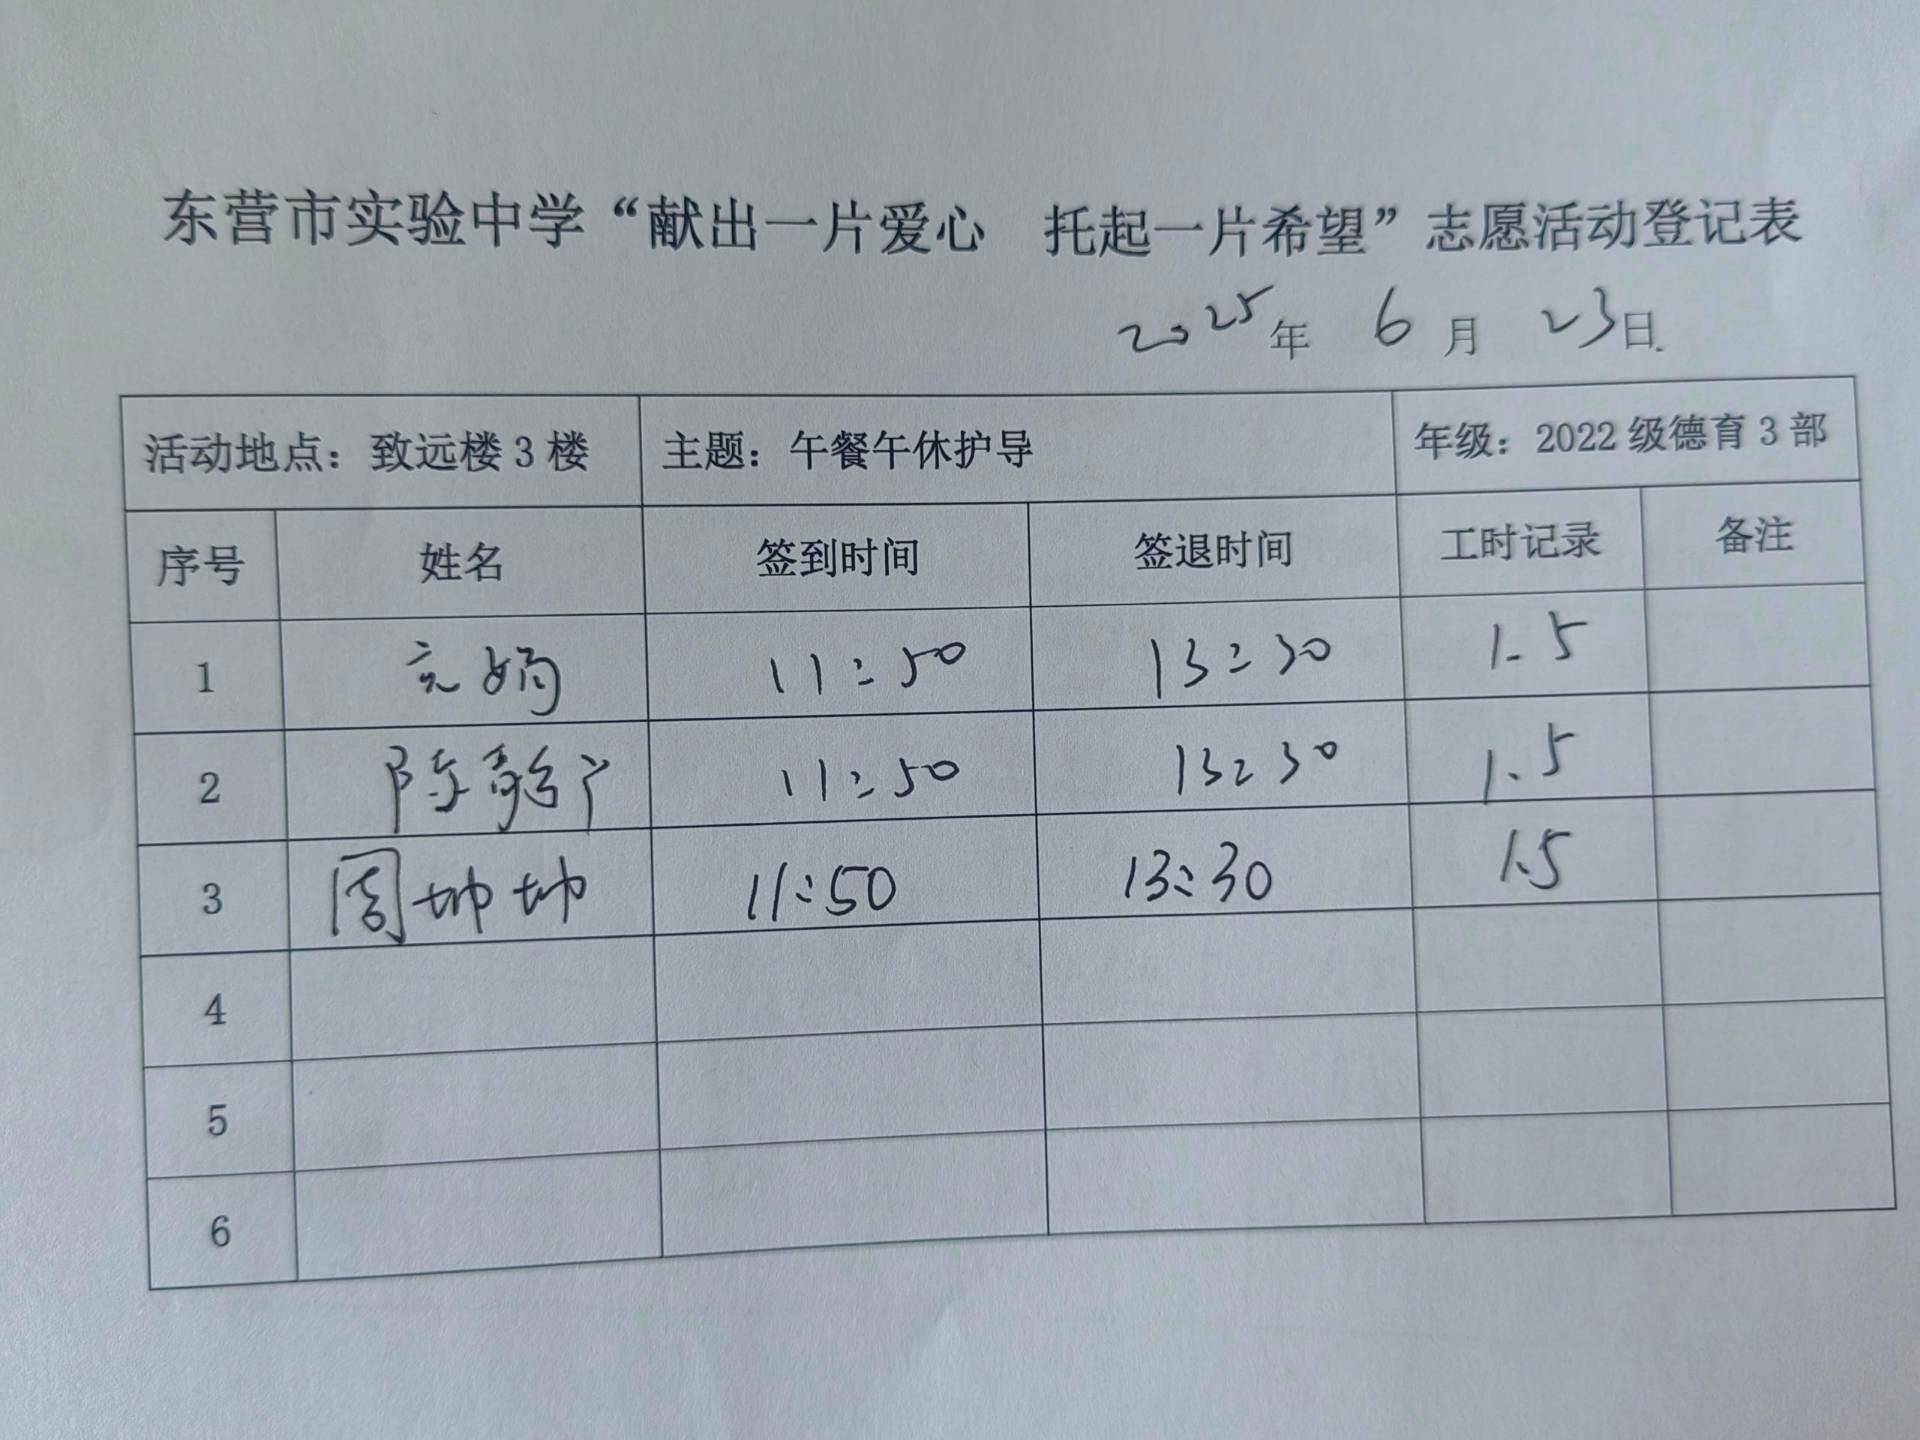 东营市实验中学“献出一片爱心 托起一片希望”志愿活动登记表
2025年 6 月 23日
活动地点：致远楼3楼 主题：午餐午休护导 年级：2022级德育3部
序号 姓名 签到时间 签退时间 工时记录 备注
1 亓娟 11:50 13:30 1.5
2 陈 11:50 13:30 1.5
3 周坤坤 11:50 13:30 1.5
4
5
6